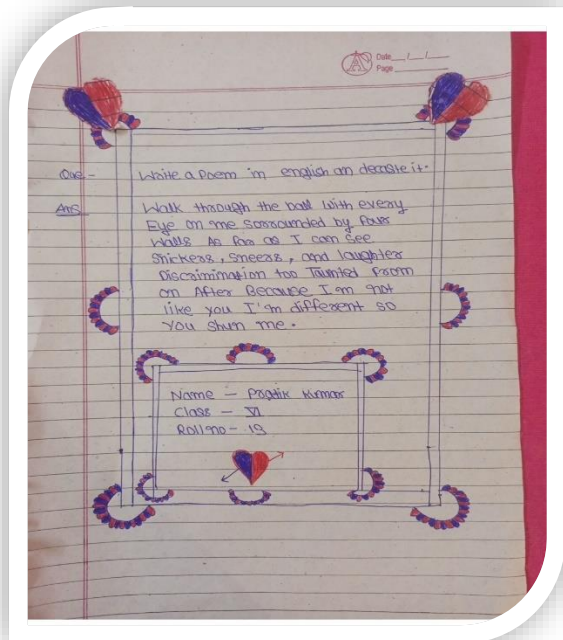 Date__/__/__
Page
Que - Write a Poem in english an decaste it.
Ans Walk through the ball with every
Eye on me sorrounded by four
walls As far as I can see
Snickers, Sneers, and laughter
Discrimination too Taunted From
on After Because I'm not
like you I'm different so
you shun me.
Name - Pratik Kumar
Class - VI
Roll no - 19